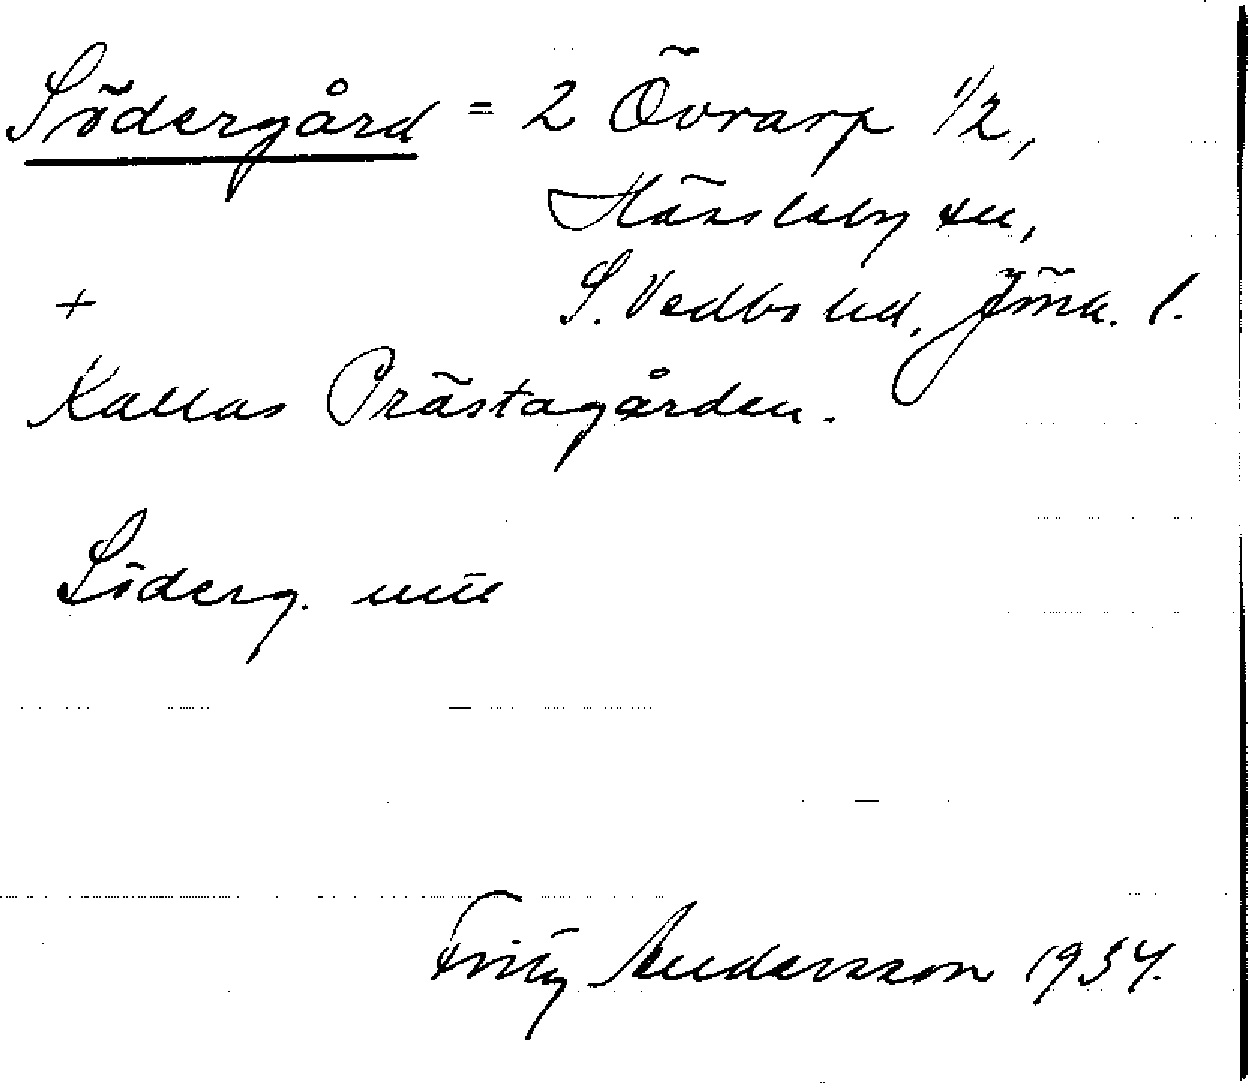 Södergård = 2 Övrarp 1/2,
Hässleby sn,
+ S. Vedbo hd. Jönk. l.
Kallas Prästagården.
Söderg.
Fritz Andersson 1934.